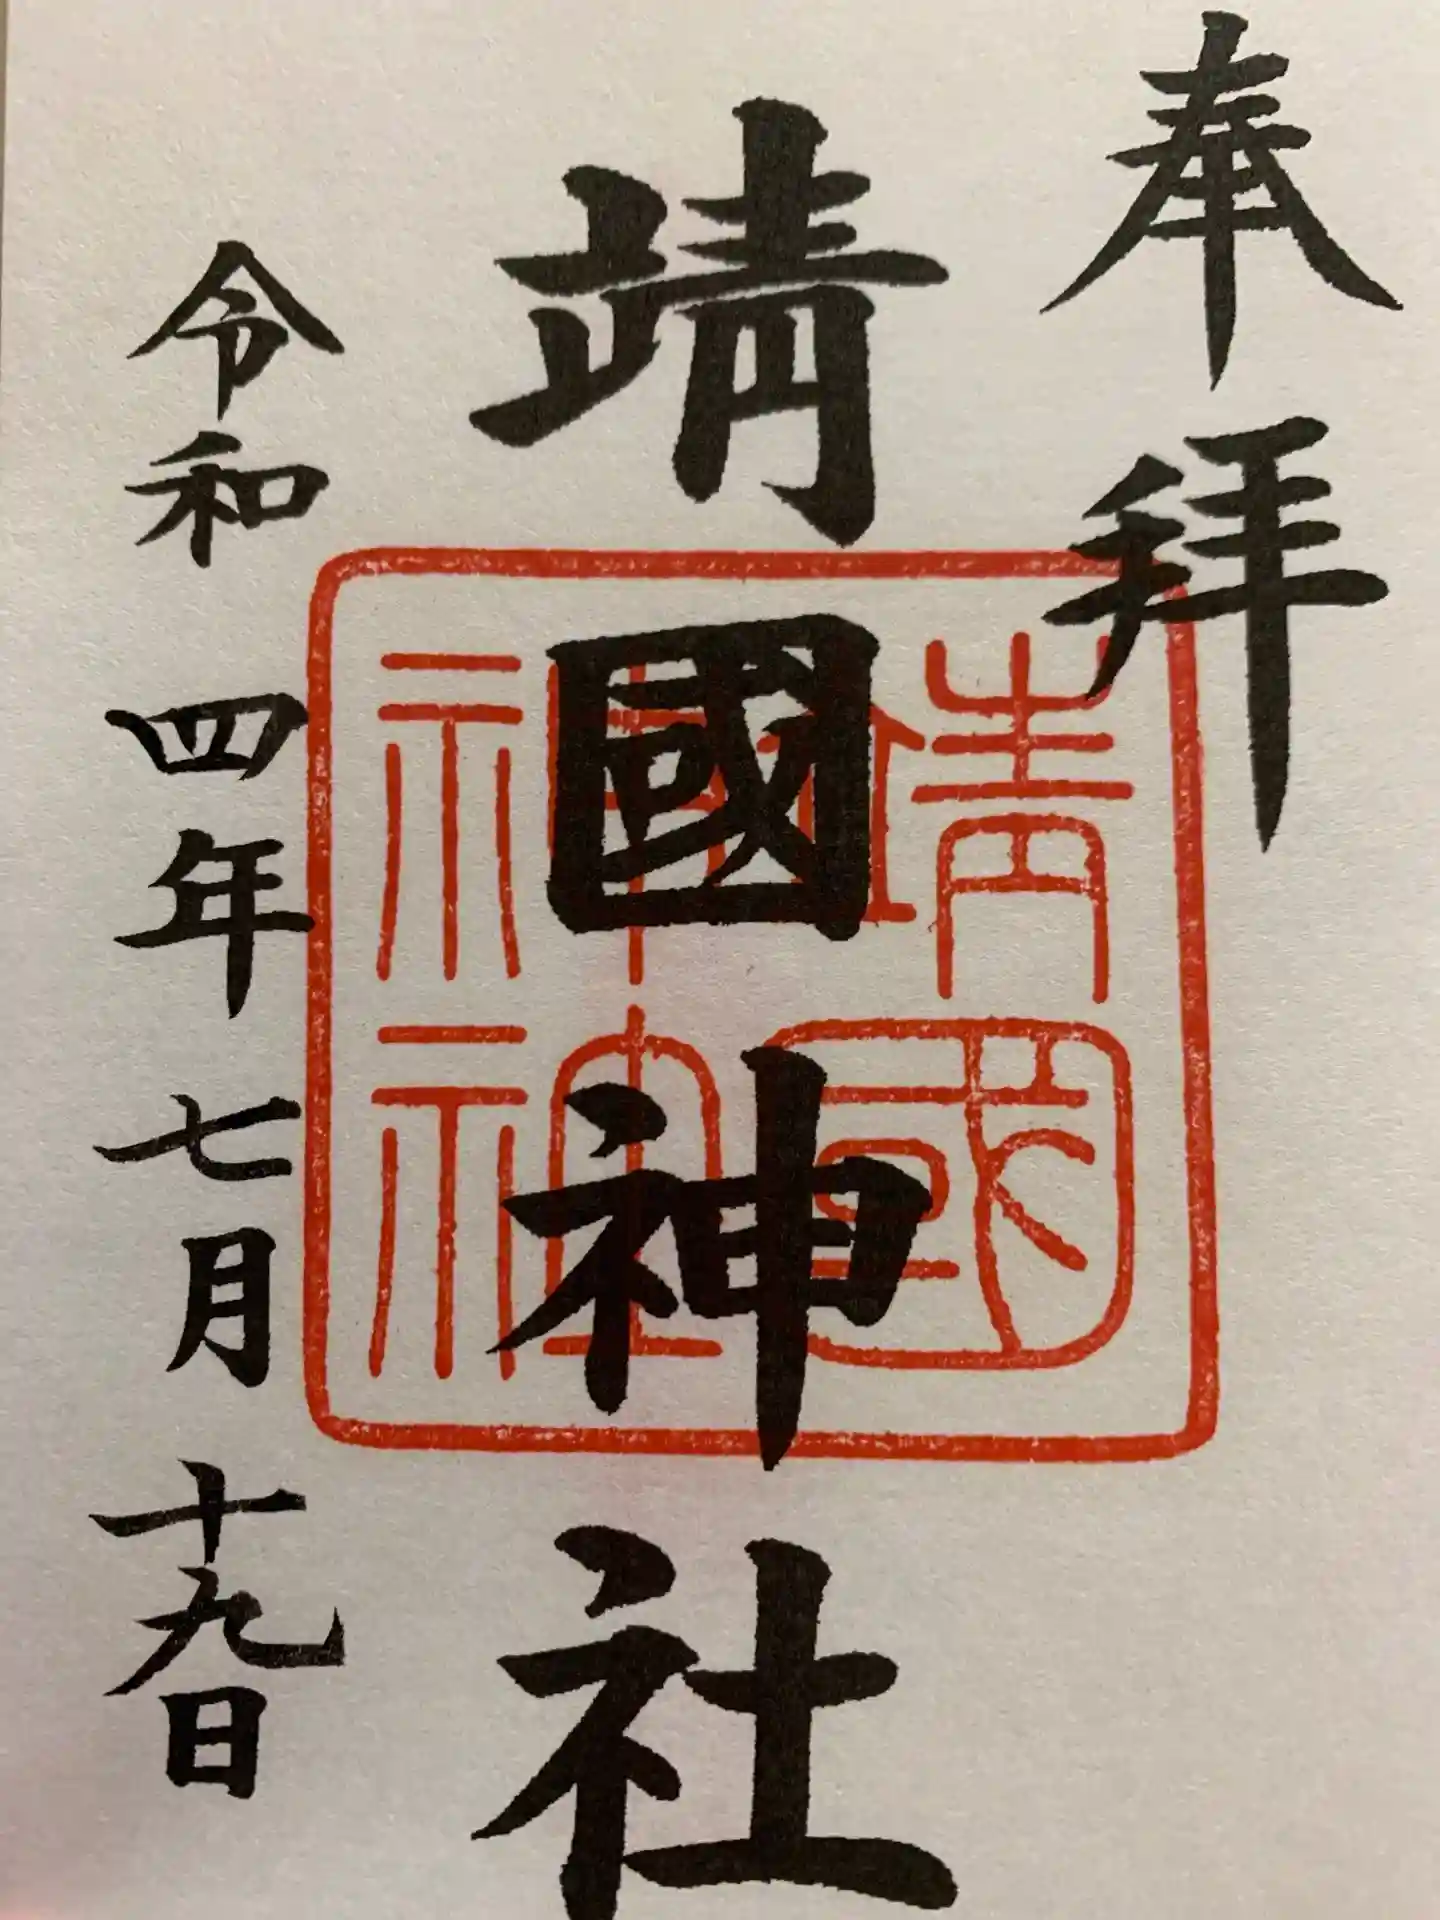 奉拝
靖國神社
靖國神社
令和四年七月十九日